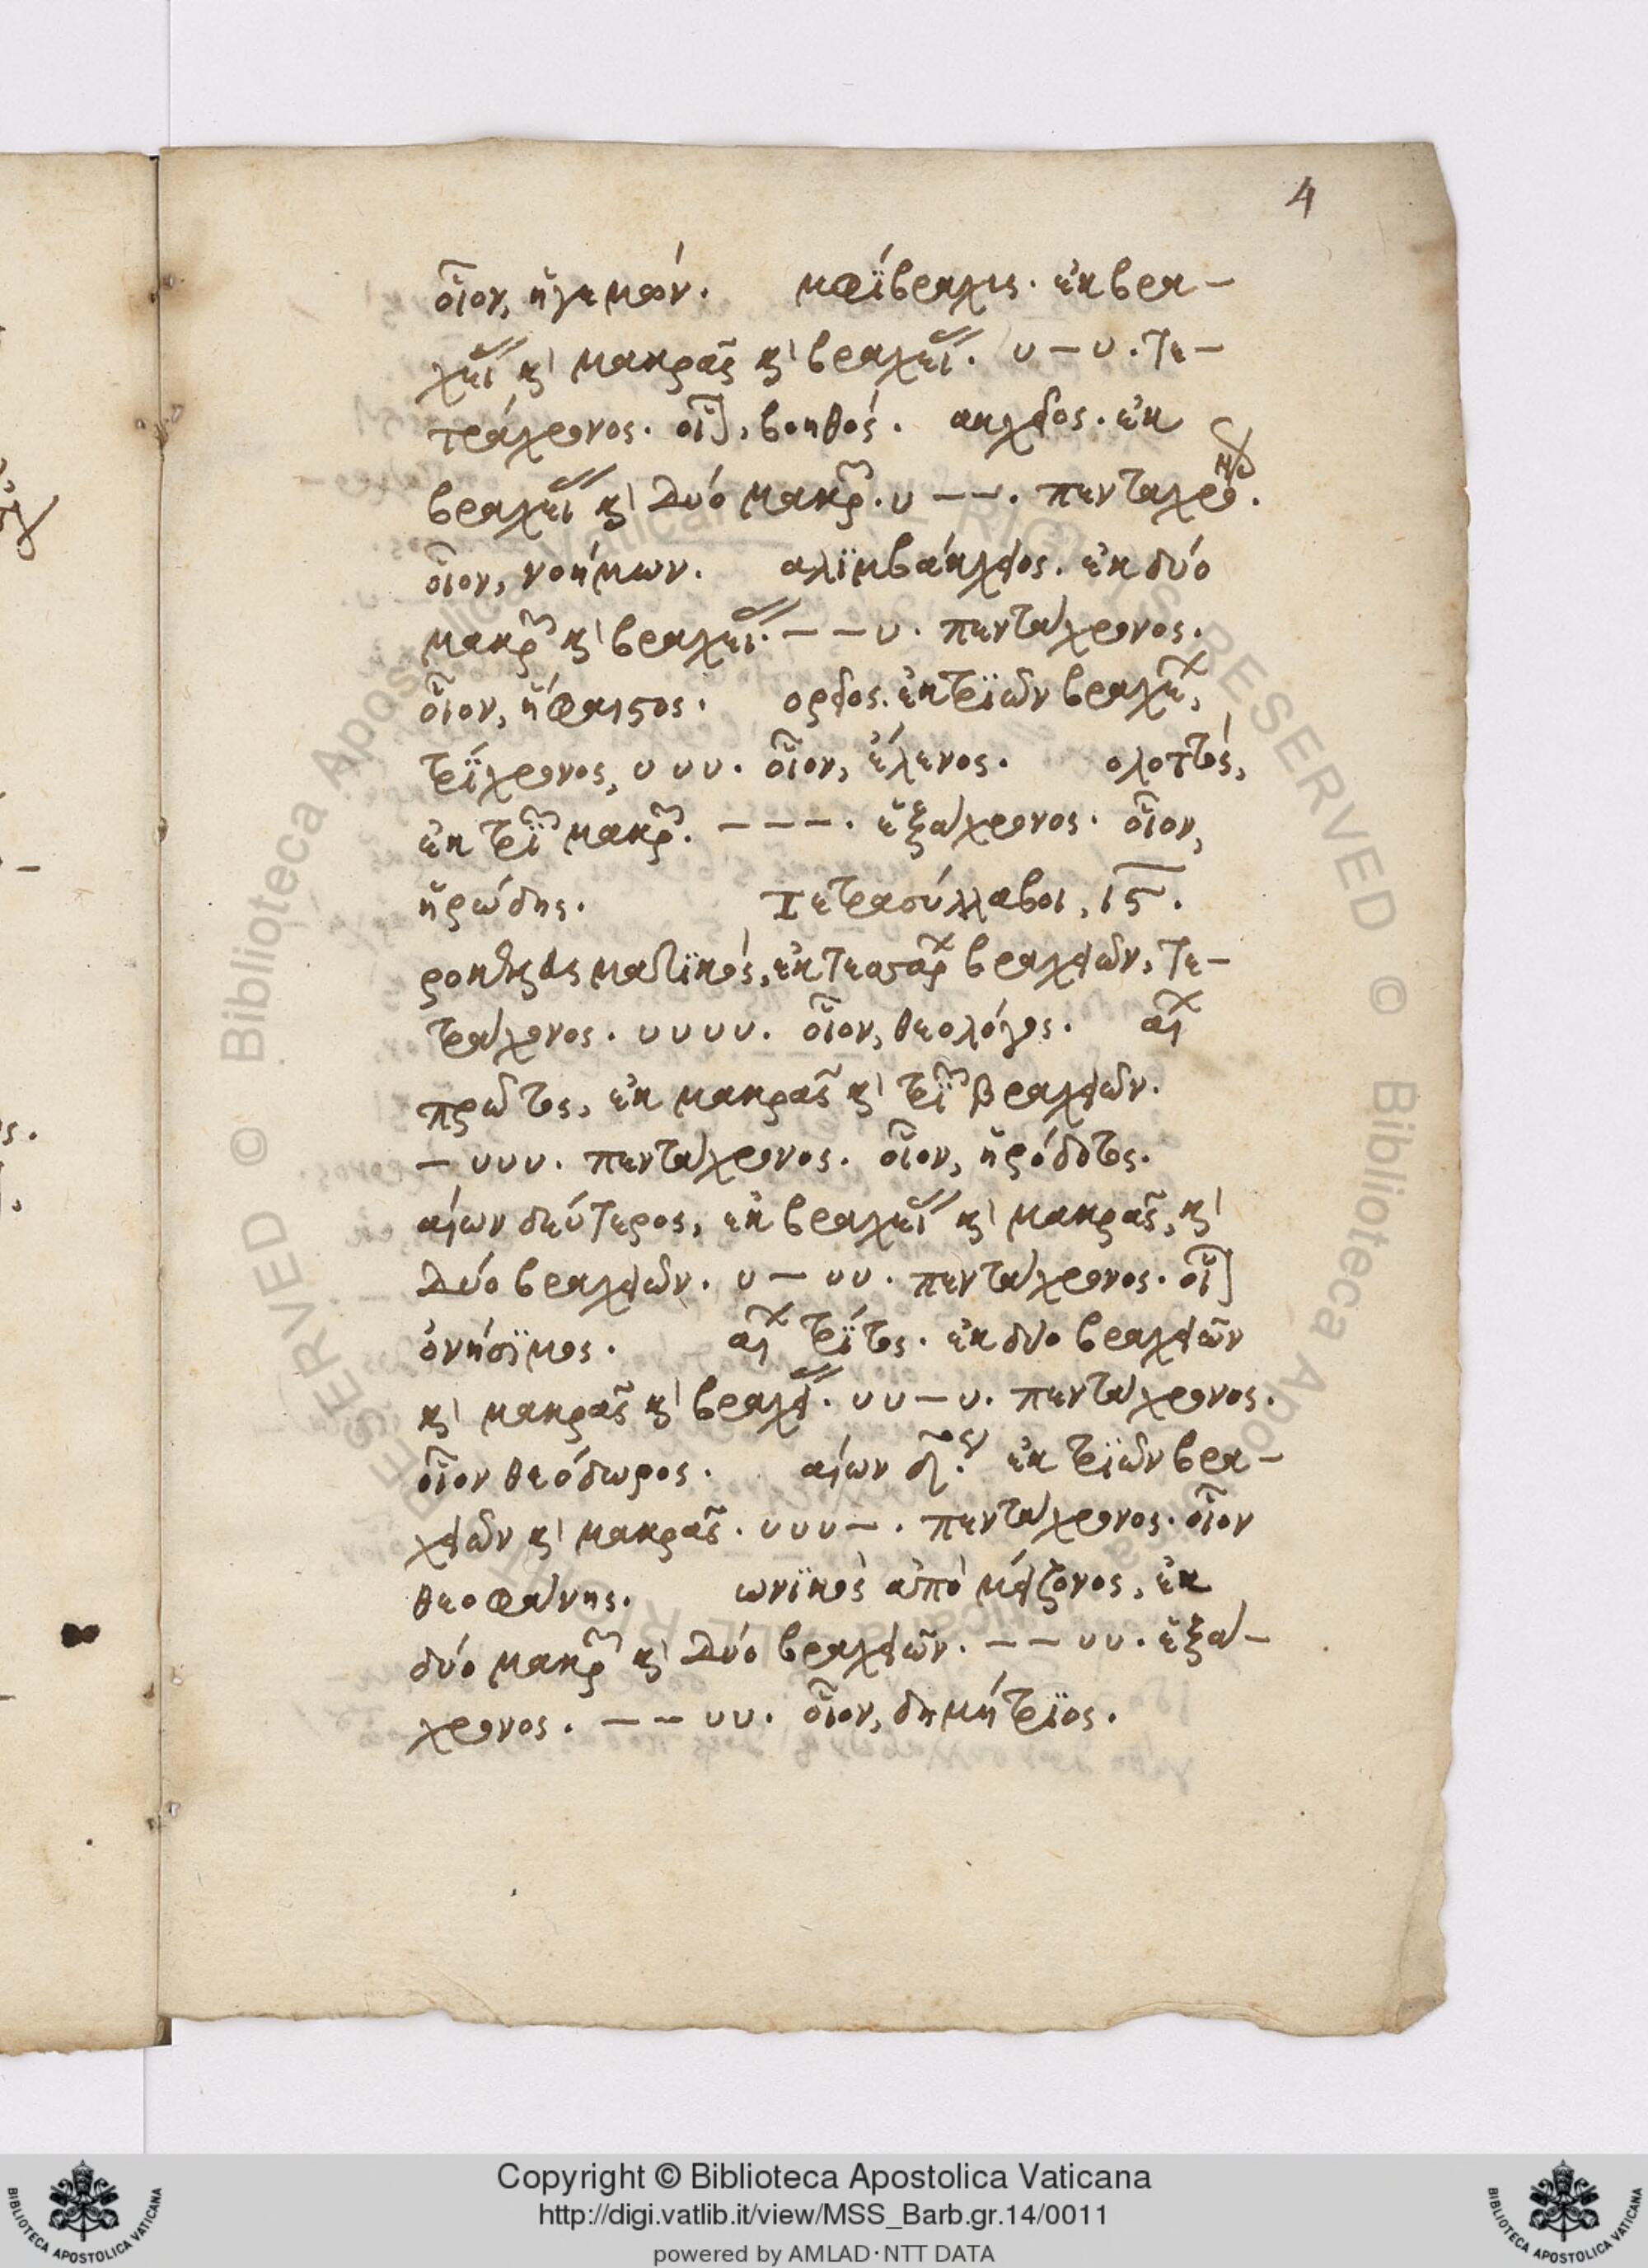 4
οἷον, ἡγεμών. μφίβραχυς. ἐκ βρα–
χείας καὶ μακρᾶς καὶ βραχείας. υ – υ. τε–
τράχρονος. οἷον, βοηθός. ακχεῖος. ἐκ
βραχείας καὶ δύο μακρῶν. υ – –. πεντάχρονος.
οἷον, νοήμων. αλιμβάκχειος. ἐκ δύο
μακρῶν καὶ βραχείας. – – υ. πεντάχρονος.
οἷον, ἥφαιστος. ορεῖος. ἐκ τριῶν βραχειῶν,
τρίχρονος, υ υ υ. οἷον, ἕλενος. ολοττός,
ἐκ τριῶν μακρῶν. – – –. ἑξάχρονος. οἷον,
ἡρώδης. Τετρασύλλαβοι, ιϛ.
ροκελευσματικός, ἐκ τεσσάρων βραχειῶν, τε–
τράχρονος. υ υ υ υ. οἷον, θεολόγος. αίων
πρῶτος, ἐκ μακρᾶς καὶ τριῶν βραχειῶν.
– υ υ υ. πεντάχρονος. οἷον, ἡρόδοτος.
αίων δεύτερος, ἐκ βραχείας καὶ μακρᾶς, καὶ
δύο βραχειῶν. υ – υ υ. πεντάχρονος. οἷον
ὀνήσιμος. αίων τρίτος. ἐκ δύο βραχειῶν
καὶ μακρᾶς καὶ βραχείας. υ υ – υ. πεντάχρονος.
οἷον θεόδωρος. αίων δ.ος ἐκ τριῶν βρα–
χειῶν καὶ μακρᾶς. υ υ υ –. πεντάχρονος. οἷον
θεοφάνης. ωνικὸς ἀπὸ μείζονος, ἐκ
δύο μακρῶν καὶ δύο βραχειῶν. – – υ υ. ἑξά–
χρονος. – – υ υ. οἷον, δημήτριος.
Copyright © Biblioteca Apostolica Vaticana
http://digi.vatlib.it/view/MSS_Barb.gr.14/0011
powered by AMLAD·NTT DATA